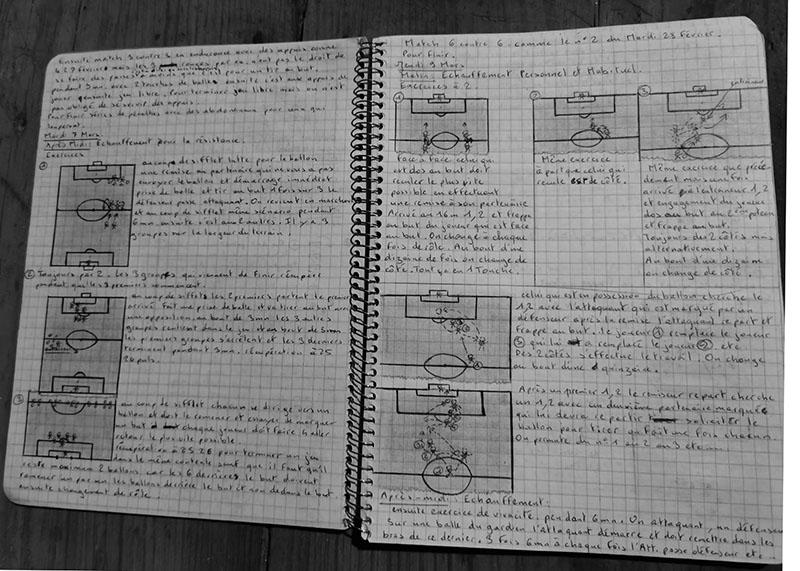 Ensuite match 3 contre 3 en endurance avec des appuis comme
le 27 février mais les 3 rouges par ex. n'ont pas le droit de
se faire des passes moins que c'est pour un tir au but
pendant 3mn. avec 2 touches de balle ensuite c'est aux appuis de
jouer ensuite jeu libre. Pour terminer jeu libre mais on n'est
pas obligé de se servir des appuis.
Pour finir séries de penaltys avec des abdominaux pour ceux qui
loupent.
Mardi 7 Mars.
Après Midi: Echauffement pour la résistance.
Exercices
①
au coup de sifflet lutte pour le ballon
une remise au partenaire qui ne vous a pas
envoyer le ballon et démarrage immédiat
prise de balle et tir au but 1 fois sur 3 le
défenseur passe attaquant. On revient en marchant
et au coup de sifflet même scénario pendant
6mn ensuite s'est aux 2 autres. Il y a 3
groupes sur la largeur du terrain.
② Toujours par 2. Les 3 groupes qui viennent de finir récupère
pendant que les 3 premiers commencent.
au coup de sifflets les 2 premiers partent le premier
arrivé fait une prise de balle et va tirer au but avec
une opposition au bout de 3mn les 3 autres
groupes rentrent dans le jeu et au bout de 3mn
les premiers groupes s'arrêtent et les 3 derniers
terminent pendant 3mn. récupération à 25
26 puls.
③
au coup de sifflet chacun se dirige vers un
ballon et doit le ramener et essayer de marquer
un but chaque joueur doit faire 4 aller
retour le plus vite possible.
récupération à 25 26 pour terminer un jeu
dans le même contexte sauf que il faut qu'il
reste maximum 2 ballons car les 6 derrière le but doivent
ramener un par un les ballons derrière le but et non dedans le but
ensuite changement de rôle.
Match 6 contre 6 comme le n° 2 du Mardi 23 Février.
Pour finir.
Jeudi 9 Mars
Matin: Echauffement Personnel et Habituel.
Exercices à 2.
①
②
③
Face à face celui qui
est dos au but doit
reculer le plus vite
possible en effectuant
une remise à son partenaire
Arrivé au 16m 1, 2 et frappe
au but du joueur qui est face
au but. On change à chaque
fois de rôle. Au bout d'une
dizaine de fois on change de
côté. Tout ça en 1 Touche.
Même exercice
à part que celui qui
recule est de côté.
Même exercice que précé-
demment mais une fois
arrivé près l'entraîneur 1, 2
et engagement du joueur
dos au but au 2ème poteau
et frappe au but.
Toujours des 2 côtés mais
alternativement.
Au bout d'une dizaine
on change de côté.
celui qui est en possession du ballon cherche le
1, 2 avec l'attaquant qui est marqué par un
défenseur après la remise l'attaquant repart et
frappe au but. le joueur ① remplace le joueur
③ qui lui a remplacé le joueur ② etc
Des 2 côtés s'effectue le travail. On change
au bout d'une quinzaine.
Après un premier 1, 2 le remiseur repart cherche
un 1, 2 avec un deuxième partenaire marqué
qui lui devra repartir solliciter le
ballon pour tirer au but une fois chacun.
On permute du n° 1 au 2 au 3 etc...
Après-midi: Echauffement.
ensuite exercice de vivacité. pendant 6mn. Un attaquant, un défenseur
sur une balle du gardien l'attaquant démarre et doit remettre dans les
bras de ce dernier. 3 fois 6mn à chaque fois l'Att. passe défenseur etc...